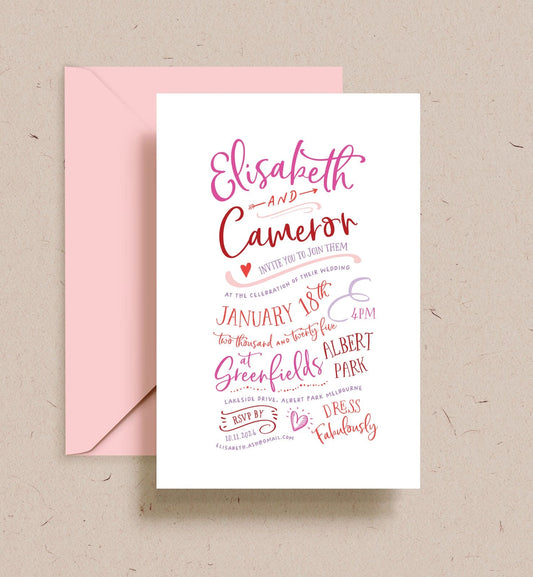 Elisabeth
AND
Cameron
INVITE YOU TO JOIN THEM
AT THE CELEBRATION OF THEIR WEDDING
JANUARY 18th
4PM
two thousand AND twenty five
at
Greenfields
ALBERT
PARK
LAKESIDE DRIVE, ALBERT PARK MELBOURNE
RSVP BY
10.11.2024
ELISABETH.ASH@GMAIL.COM
DRESS
Fabulously